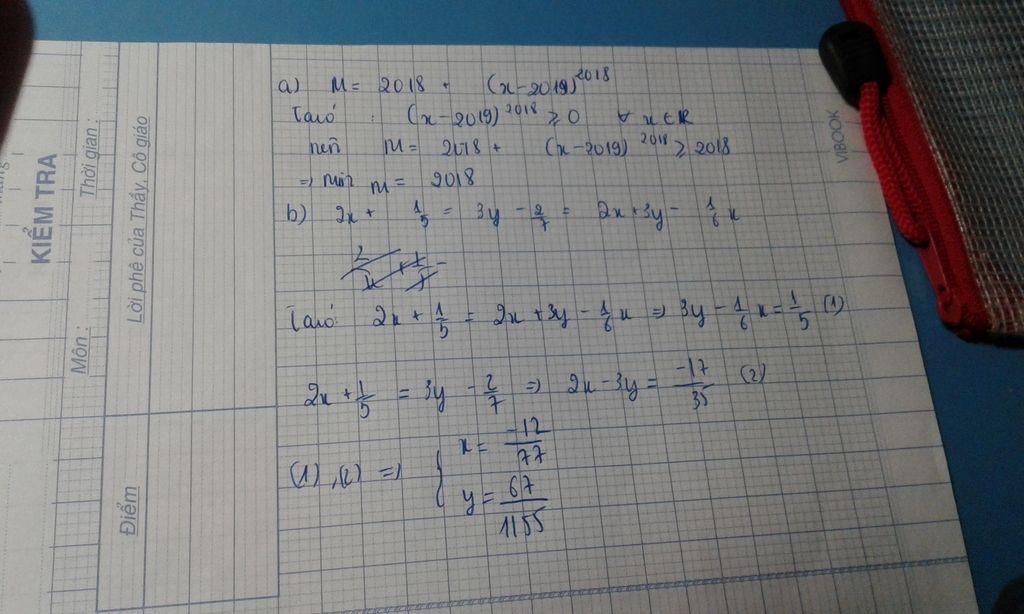 KIỂM TRA
Môn :
Thời gian :
Lời phê của Thầy, Cô giáo
Điểm
VIBOOK
a) M = 2018 + (x-2019)^2018
Ta có : (x-2019)^2018 ≥ 0 ∀ x ∈ R
nên M = 2018 + (x-2019)^2018 ≥ 2018
=> min M = 2018
b) 2x + 1/5 = 3y - 2/7 = 2x+3y - 1/6 x
Ta có: 2x + 1/5 = 2x +3y - 1/6 x => 3y - 1/6 x = 1/5 (1)
2x + 1/5 = 3y - 2/7 => 2x - 3y = -17/35 (2)
(1), (2) => { x = -12/77
y = 67/1155